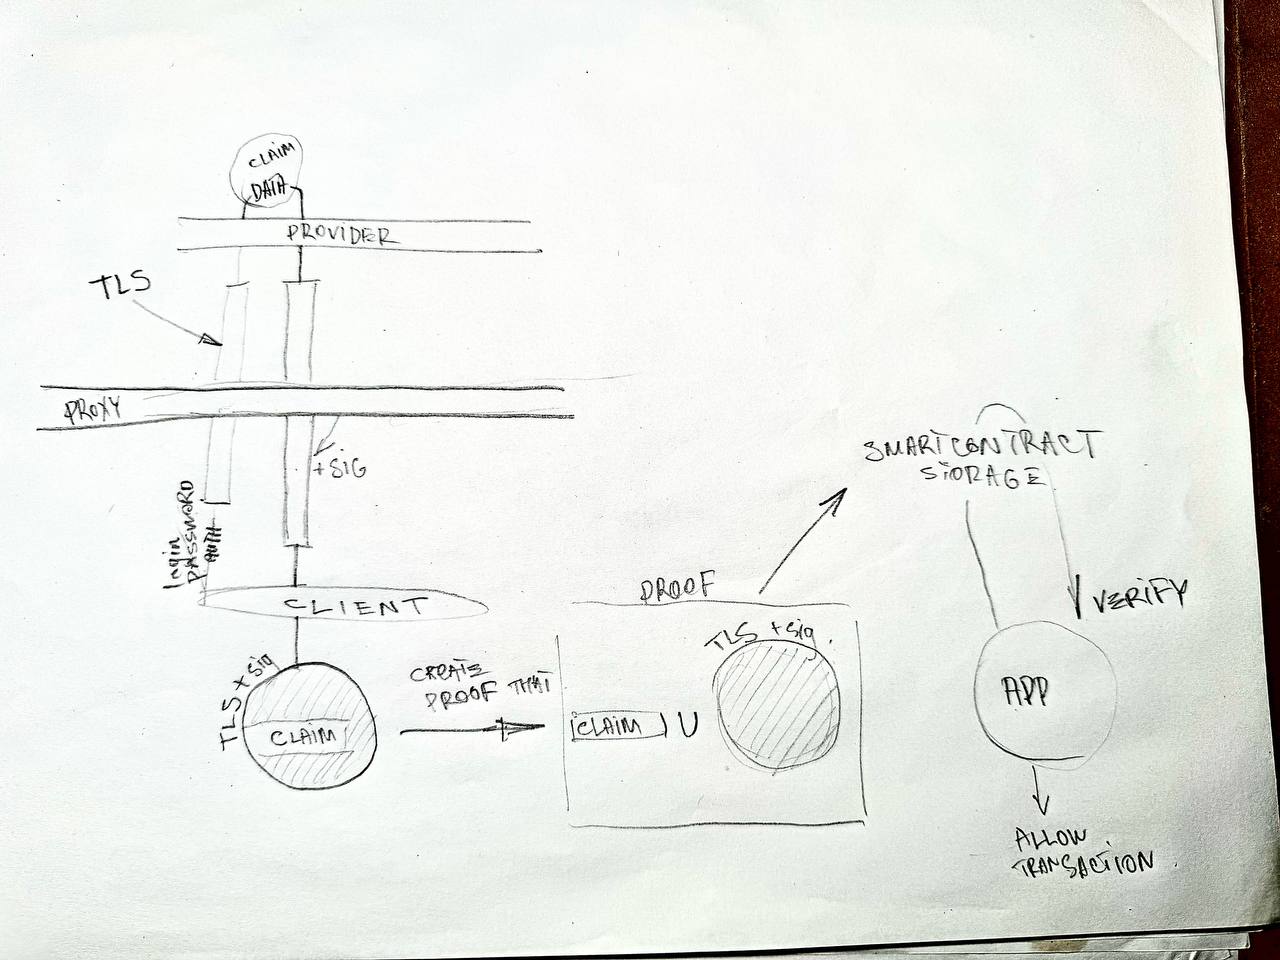 CLAIM
DATA
PROVIDER
TLS
PROXY
+SIG
login
PASSWORD
AUTH
CLIENT
TLS + Sig
CLAIM
CREATE
PROOF THAT
PROOF
TLS + Sig.
CLAIM U
SMARTCONTRACT
STORAGE
VERIFY
APP
ALLOW
TRANSACTION